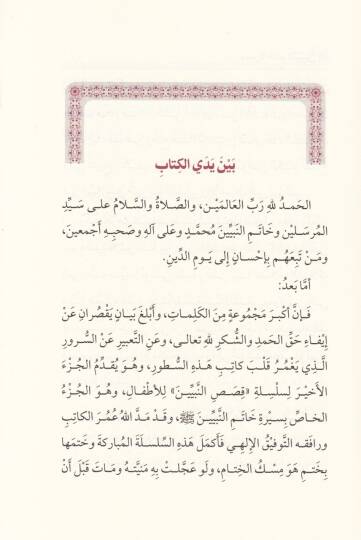 بَيْنَ يَدَيِ الكِتابِ
الحَمدُ للهِ رَبِّ العالَميْن، والصَّلاةُ والسَّلامُ على سَيِّدِ
المُرسَلين وخَاتَمِ النَّبيِّينَ مُحمَّدٍ وعَلى آلِهِ وصَحبِهِ أجمَعينَ،
ومَنْ تَبِعَهُم بإحْسانٍ إلى يَومِ الدِّينِ.
أمَّا بَعدُ:
فَإنَّ أكْبَرَ مَجْمُوعةٍ مِنَ الكَلِماتِ، وأَبْلغَ بَيانٍ يَقْصُرانِ عَنْ
إيفاءِ حَقِّ الحَمدِ والشُّكرِ للهِ تعالى، وعَنِ التَّعبيرِ عَنْ السُّرورِ
الَّذي يَغْمُرُ قَلْبَ كاتِبِ هَذهِ السُّطورِ، وهوَ يُقدِّمُ الجُزْءَ
الأخيْرَ لِسلْسِلةِ «قِصَصِ النَّبيِّينَ» لِلأطْفالِ، وهُوَ الجُزْءُ
الخاصُّ بِسيْرةِ خَاتَمِ النَّبيِّينَ ﷺ، وقَد مَدَّ اللهُ عُمُرَ الكاتِبِ
ورافقَه التَّوفيْقُ الإلهِي فَأكمَلَ هَذهِ السِّلسلةَ المُباركةَ وخَتمَها
بِخَتمٍ هُوَ مِسْكُ الخِتامِ، ولَو عَجَّلتْ بِهِ مَنيَّتهُ ومَاتَ قَبْلَ أنْ